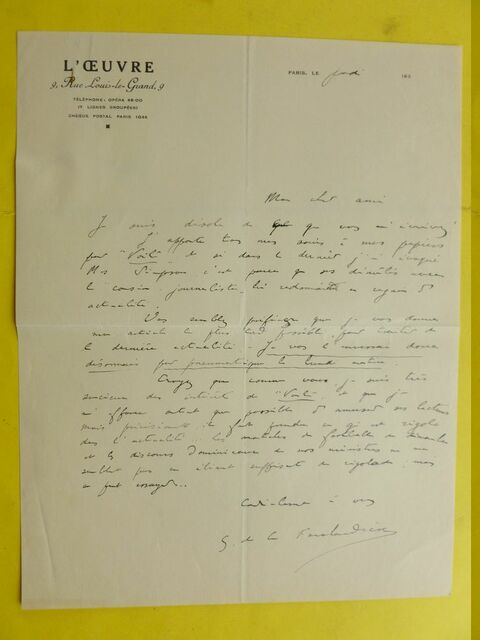 L'ŒUVRE
9, Rue Louis-le-Grand, 9
TÉLÉPHONE: OPÉRA 65-00
(7 LIGNES GROUPÉES)
CHÈQUE POSTAL PARIS 1046
PARIS, LE jeudi 193
Mon cher ami
Je suis désolé de ce que vous m'écrivez
J'apporte tous mes soins à mes papiers
pour "Voilà" et si dans le dernier j'ai évoqué
Mrs Simpson, c'est parce que ses démêlés avec
le cousin journaliste lui redonnaient un regain d'
actualité.
Vous semblez préférer que je vous donne
mon article le plus tard possible, pour tenter de
la dernière actualité. Je vous l'enverrai donc
désormais par pneumatique le lundi matin.
Croyez que comme vous je suis très
soucieux des intérêts de "Voilà", et que je
m'efforce autant que possible d'amuser ses lecteurs
mais
dans l'actualité: les matches de football du dimanche
et les discours dominicaux de nos ministres ne me
semblent pas un élément suffisant de rigolade; mais
on peut essayer..
Cordialement à vous
G. de la Fouchardière